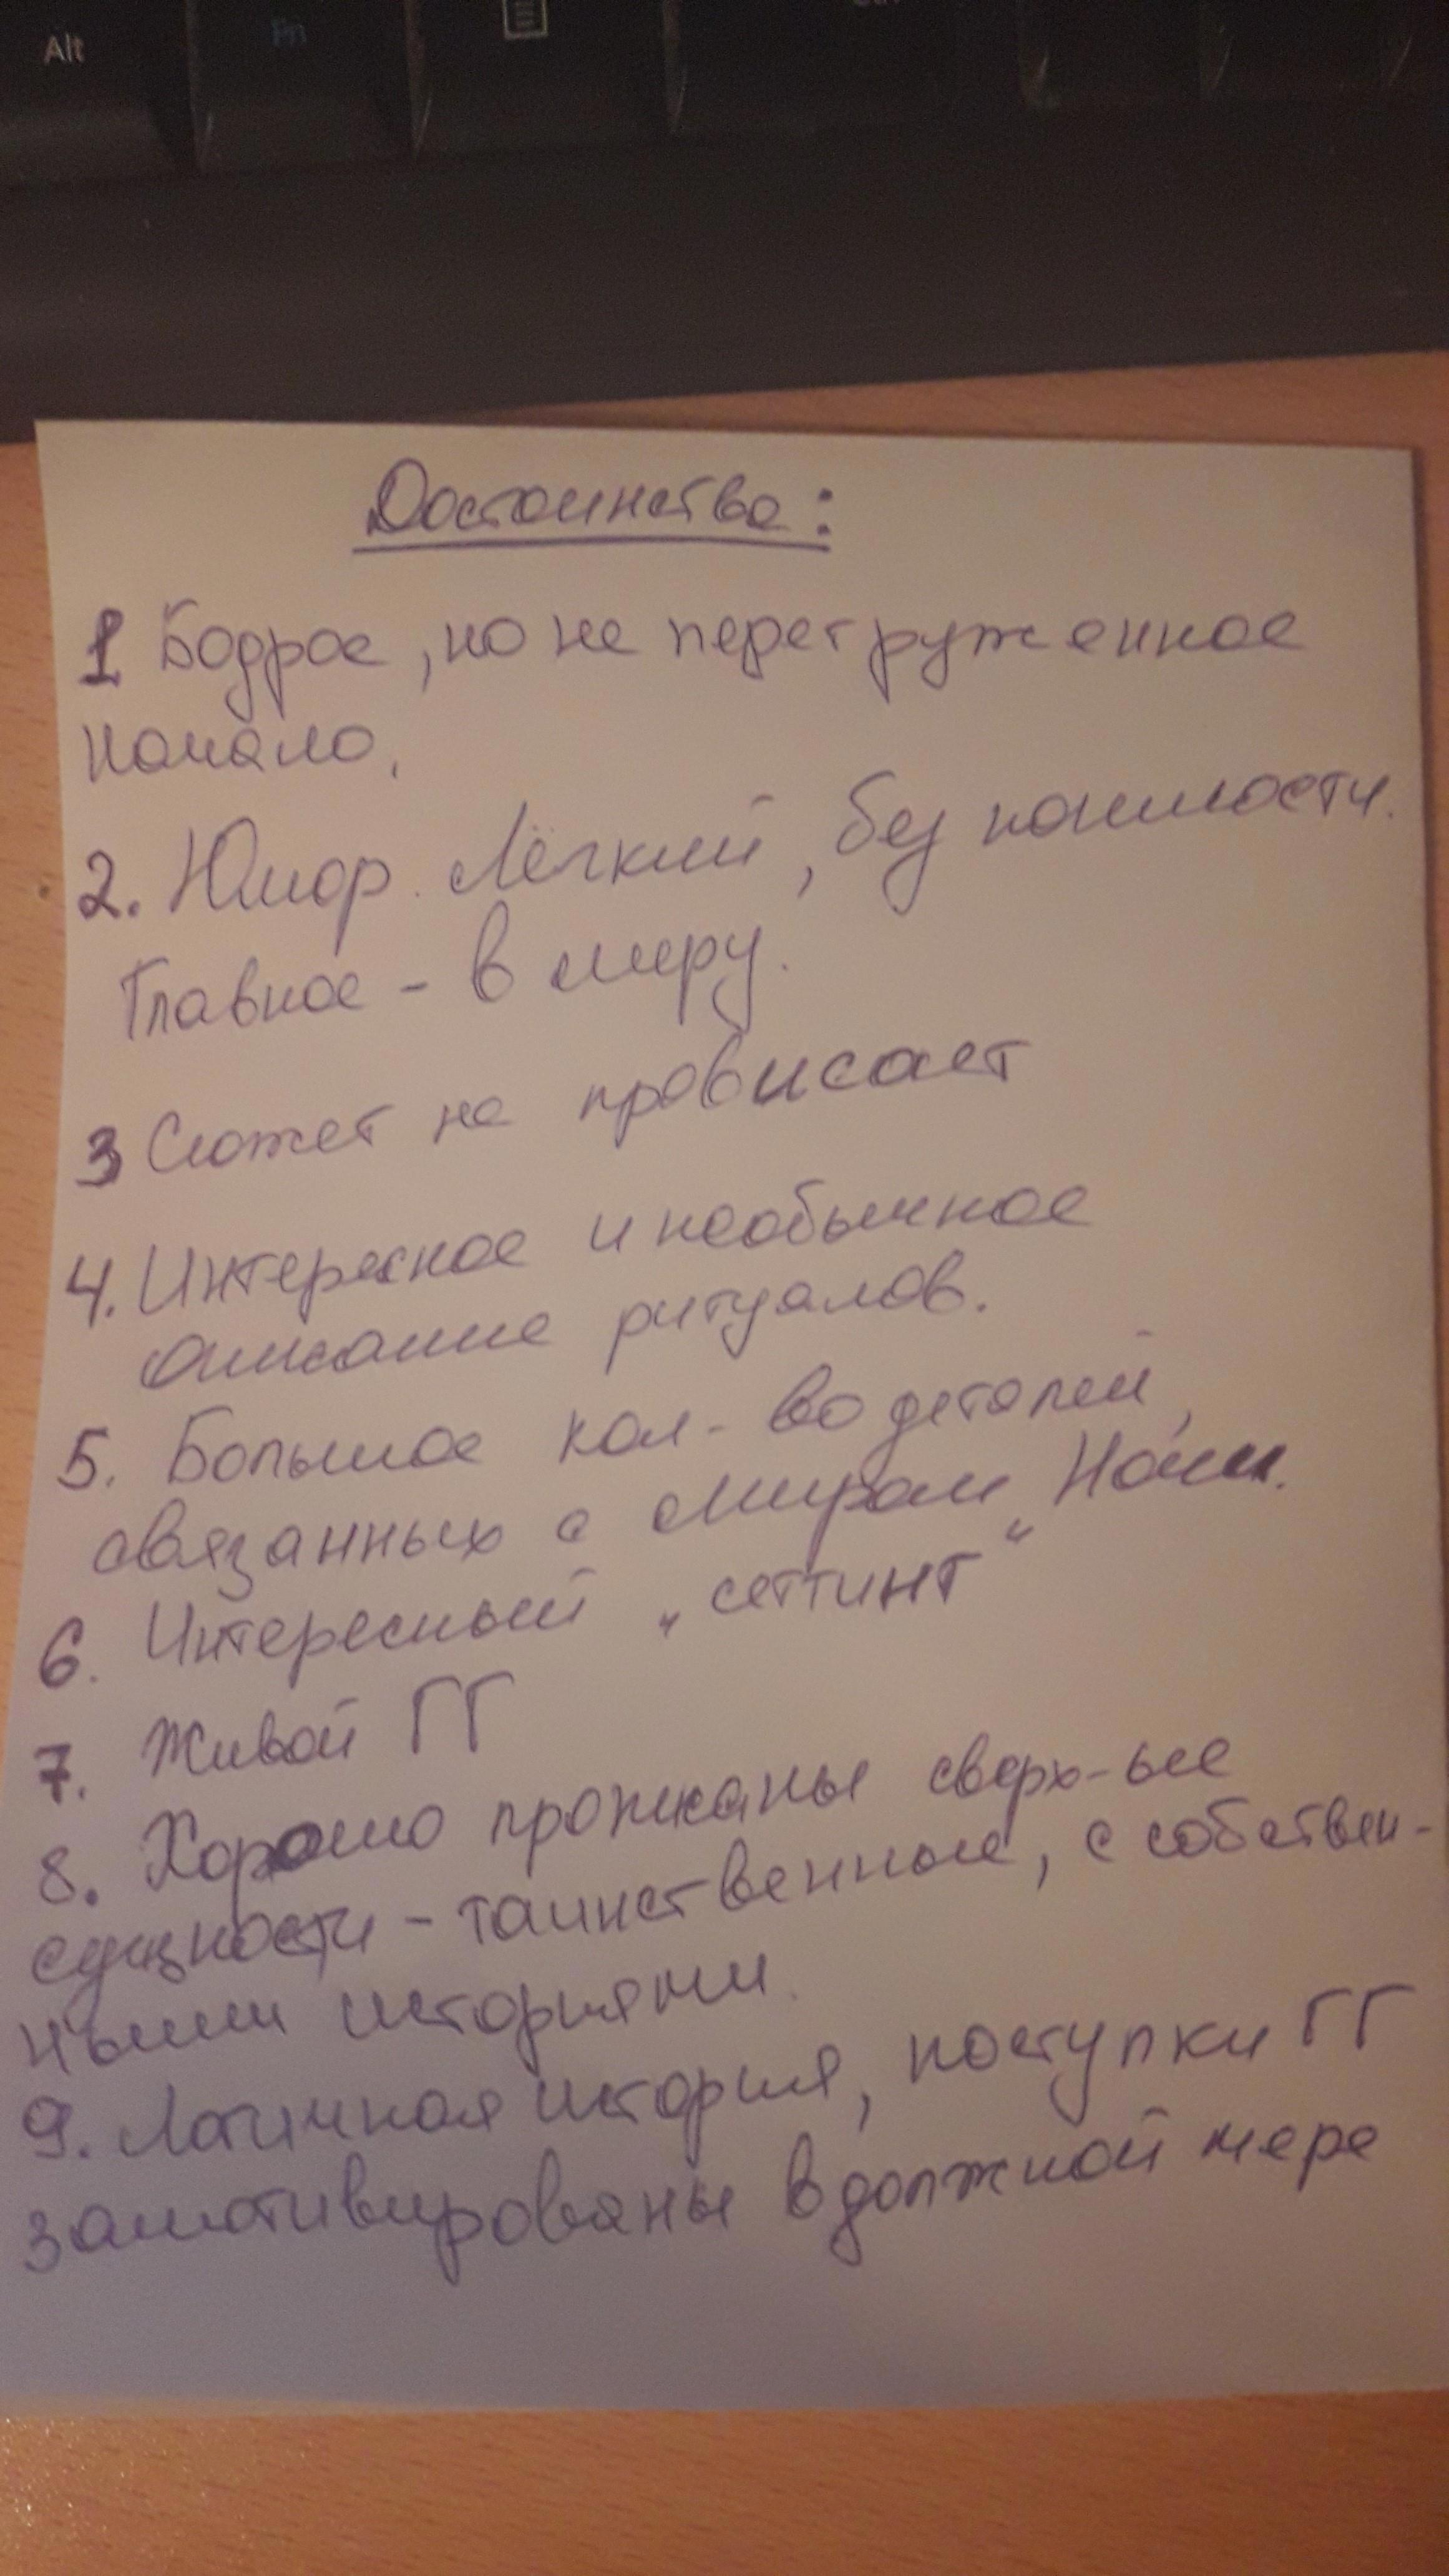 Alt
Fn
Достоинства:
1 Бодрое, но не перегруженное
начало.
2. Юмор. Лёгкий, без пошлости.
Главное - в меру.
3 Сюжет не провисает
4. Интересное и необычное
описание ритуалов.
5. Большое кол-во деталей,
связанных с миром Ночи.
6. Интересный „сеттинг“
7. Живой ГГ
8. Хорошо
сверх-ые
сущности - таинственные, с собствен-
ными историями.
9. Логичная история, поступки ГГ
замотивированы в должной мере